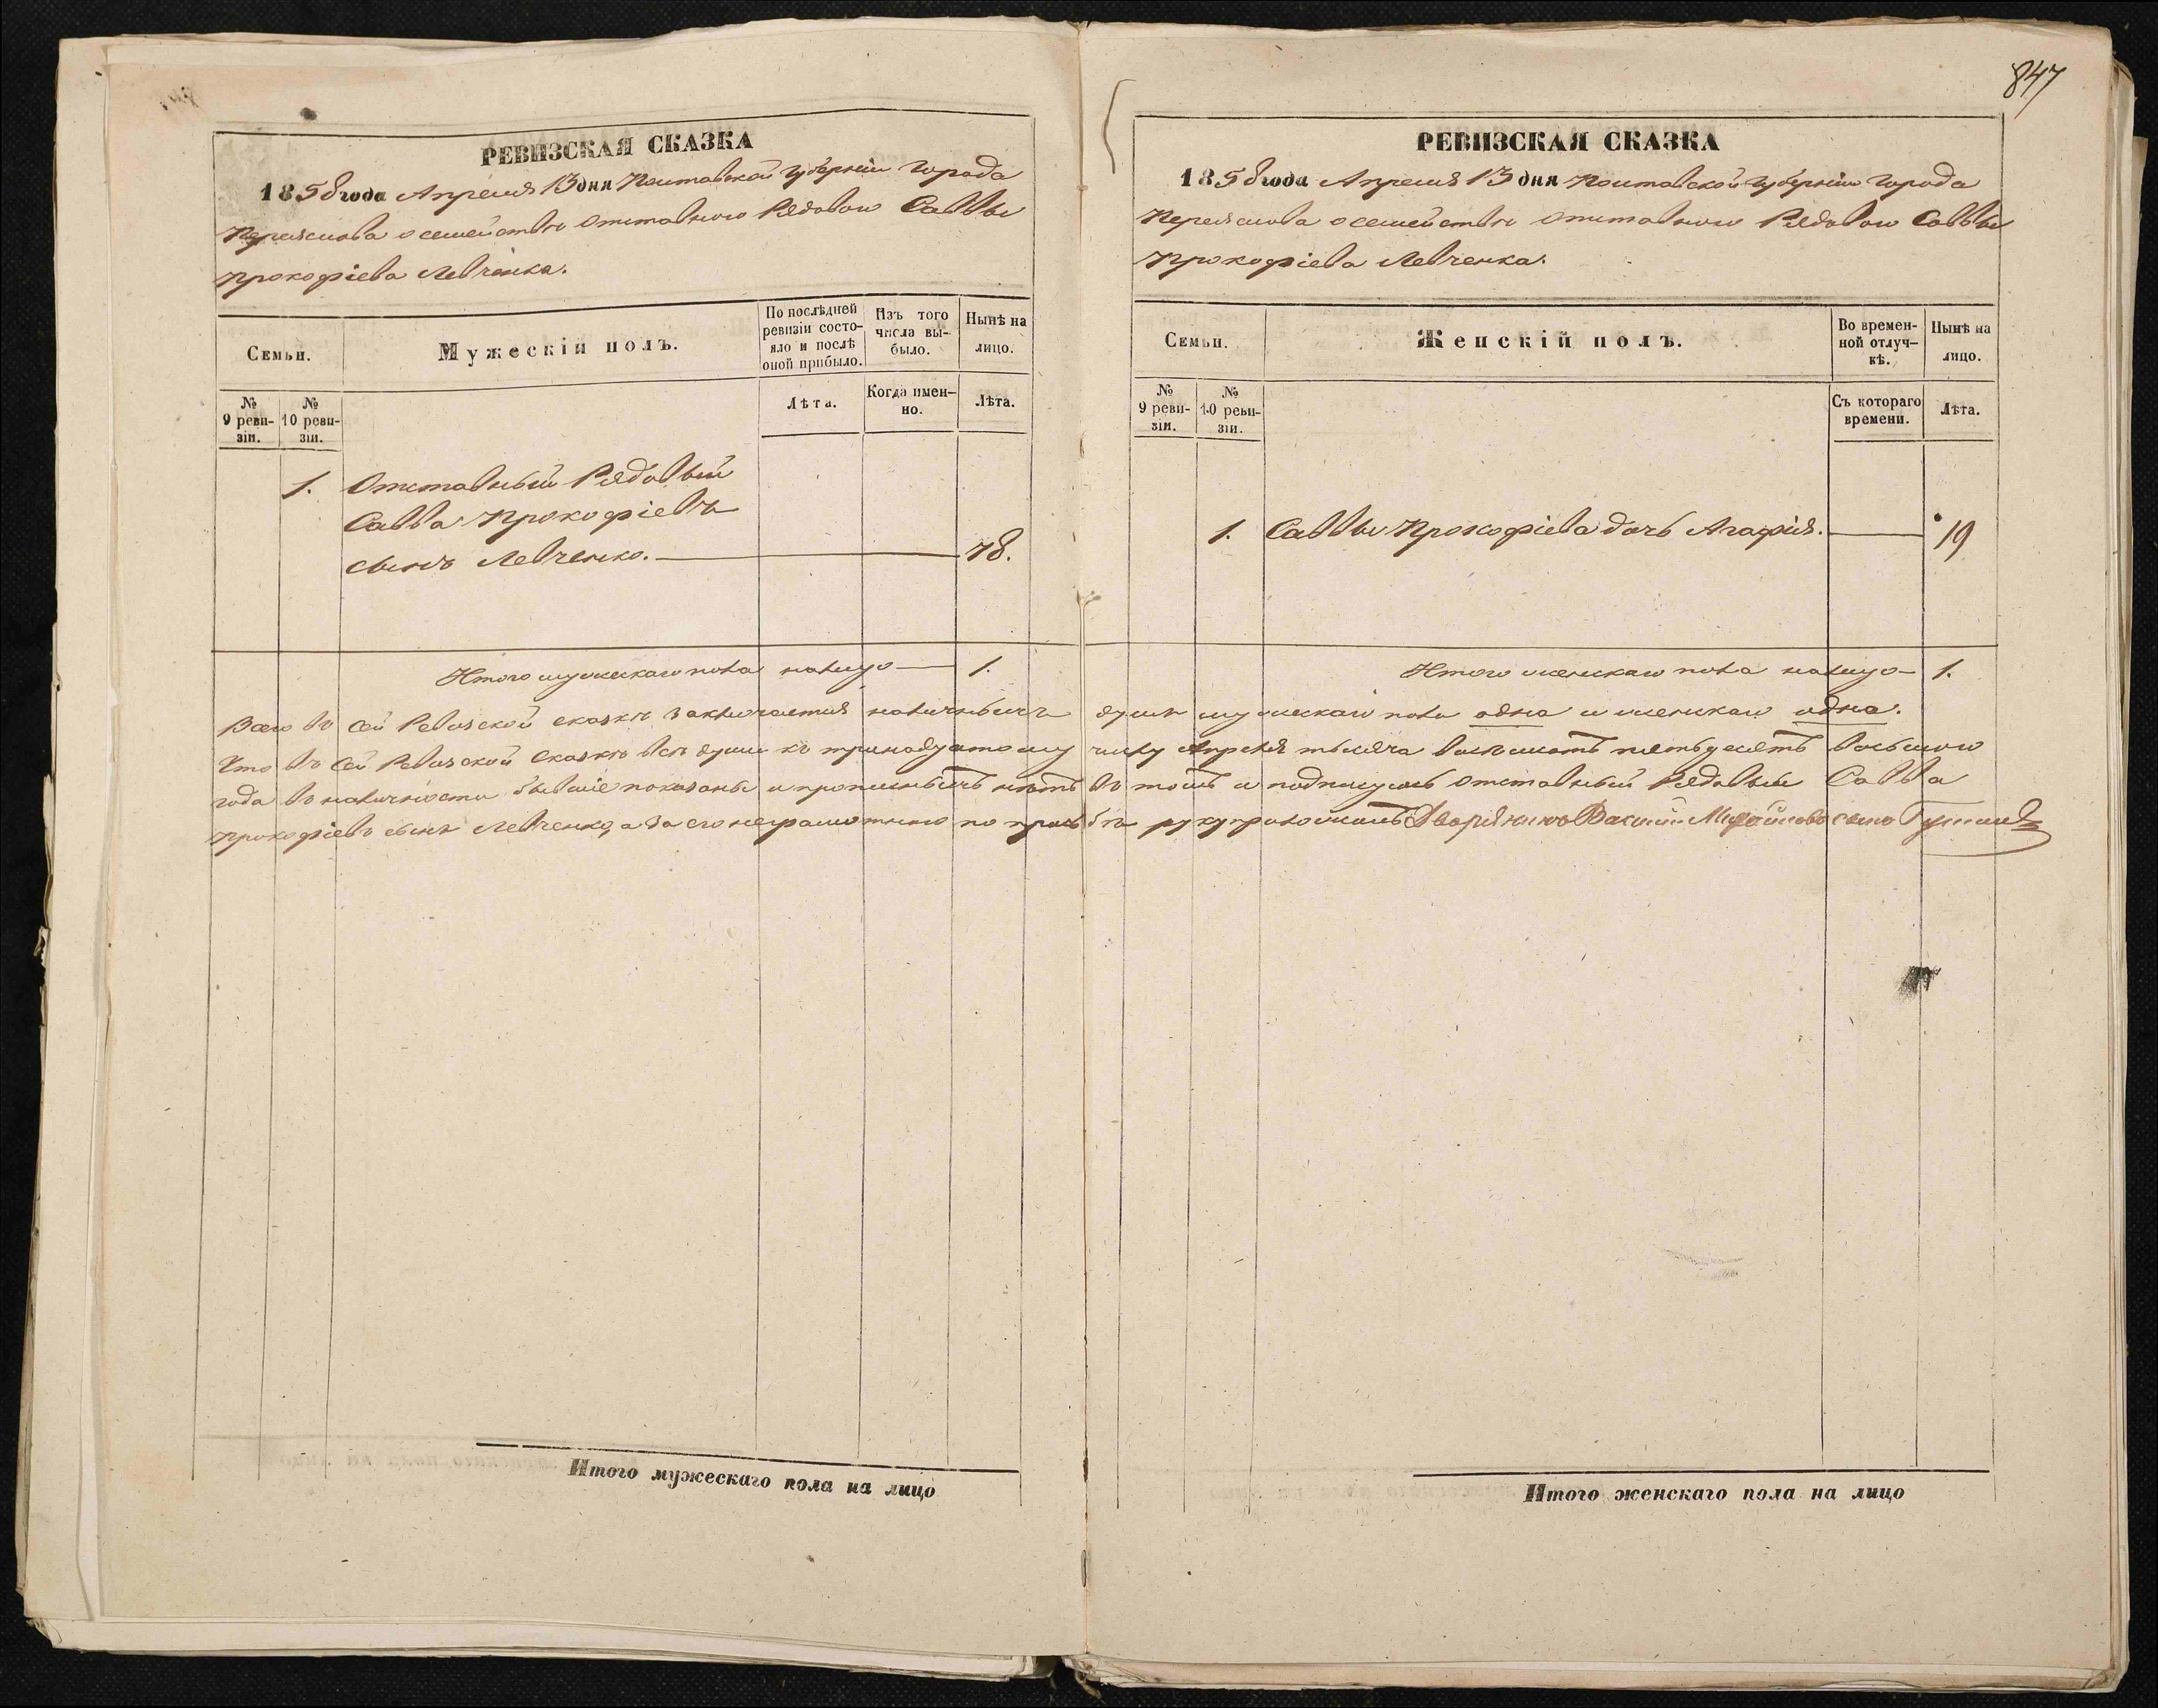 РЕВИЗСКАЯ СКАЗКА
1858 года Апреля 13 дня Полтавской Губерніи Города
Переяслова о семействѣ отставного Рядового Саввы
Прокофіева Левченка.
Семьи.
Мужескій полъ.
По послѣдней
ревизіи состо-
яло и послѣ
оной прибыло.
Изъ того
числа вы-
было.
Нынѣ на
лицо.
№
9 реви-
зіи.
№
10 реви-
зіи.
Лѣта.
Когда имен-
но.
Лѣта.
1. Отставный Рядовый
Савва Прокофіевъ
сынъ Левченко. 78.
Итого мужескаго пола налицо 1.
847
РЕВИЗСКАЯ СКАЗКА
1858 года Апреля 13 дня Полтавской Губерніи Города
Переяслова о семействѣ отставного Рядового Саввы
Прокофіева Левченка.
Семьи.
Женскій полъ.
Во времен-
ной отлуч-
кѣ.
Нынѣ на
лицо.
№
9 реви-
зіи.
№
10 реви-
зіи.
Съ котораго
времени.
Лѣта.
1. Саввы Прокофіева дочь Агафія. 19
Итого женскаго пола налицо 1.
Всего въ сей Ревизской сказкѣ заключается наличныхъ душъ мужескаго пола одна и женскаго одна.
Что въ сей Ревизской сказкѣ всѣ души къ тринадцатому числу Апреля тысяча восемьсотъ пятьдесятъ восьмого
года въ наличности бывшіе показаны и прописныхъ нѣтъ въ томъ и подписуюсь отставный Рядовый Савва
Прокофіевъ сынъ Левченко, а за его неграмотного по прозьбѣ руку приложилъ Дворянинъ Василий Михайловъ сынъ
Итого мужескаго пола на лицо
Итого женскаго пола на лицо